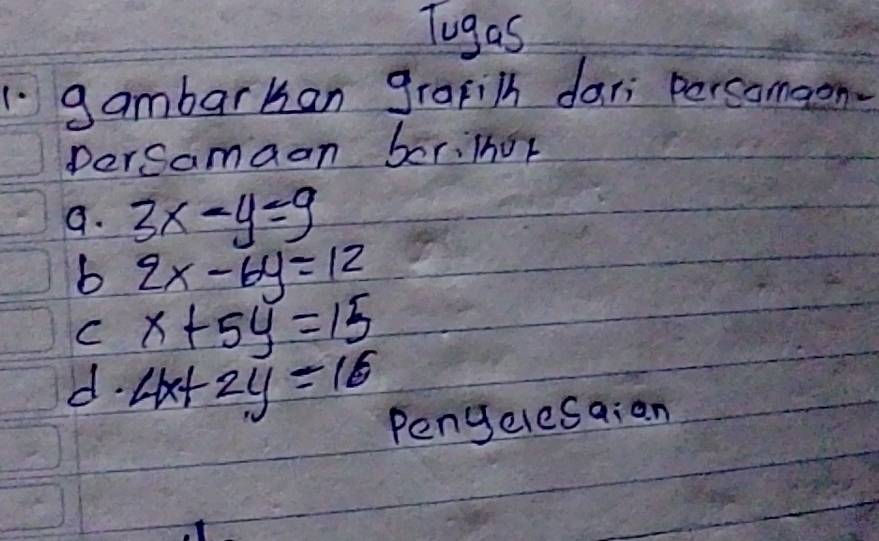 Tugas
1. gambarkan grafik dari persamaan-
persamaan berikut
a. 3x - y = 9
b 2x - 6y = 12
c x + 5y = 15
d. 4x + 2y = 16
Penyelesaian